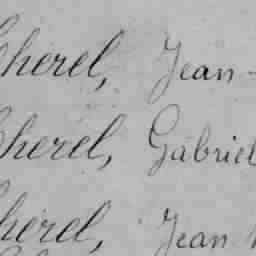 Cherel, Jean -
Cherel, Gabriel
Cherel, Jean